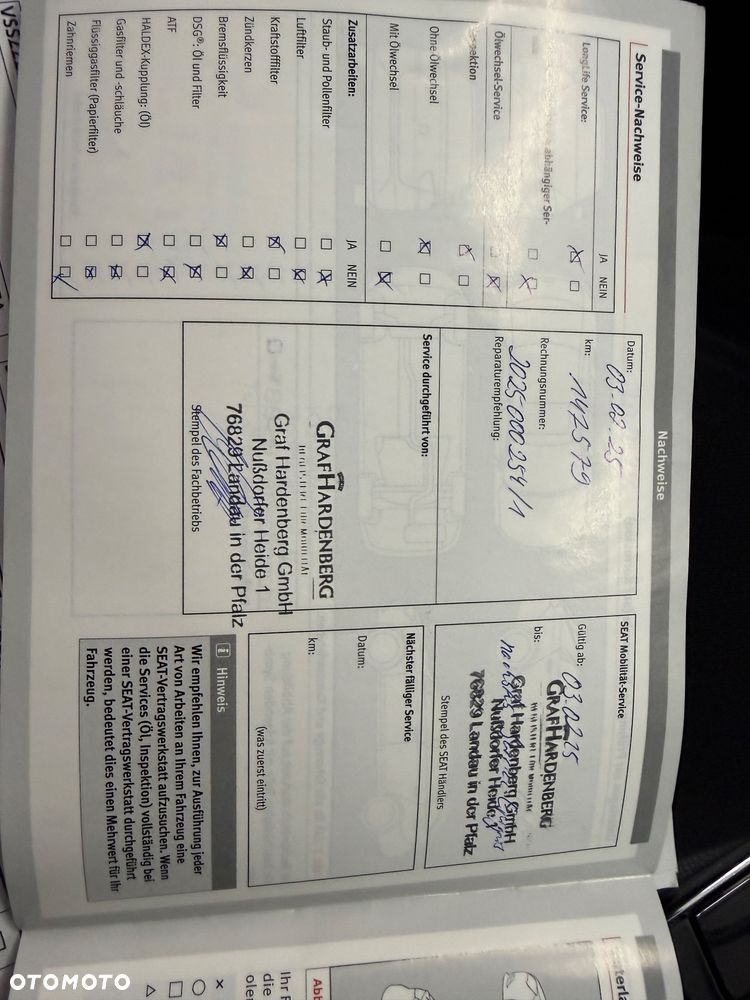 Nachweise
Service-Nachweise
JA NEIN
LongLife Service:
abhängiger Ser-
Ölwechsel-Service
Ohne Ölwechsel
Mit Ölwechsel
Zusatzarbeiten: JA NEIN
Staub- und Pollenfilter
Luftfilter
Kraftstofffilter
Zündkerzen
Bremsflüssigkeit
DSG®: Öl und Filter
ATF
HALDEX-Kupplung: (Öl)
Gasfilter und -schläuche
Flüssiggasfilter (Papierfilter)
Zahnriemen
Datum:
03.02.25
km:
147579
Rechnungsnummer:
2025000254/1
Reparaturempfehlung:
Service durchgeführt von:
GRAFHARDENBERG
Graf Hardenberg GmbH
Nußdorfer Heide 1
76829 Landau in der Pfalz
Stempel des Fachbetriebs
SEAT Mobilität-Service
Gültig ab:
03.02.25
bis:
GRAFHARDENBERG
Graf Hardenberg GmbH
Nußdorfer Heide
76829 Landau in der Pfalz
Stempel des SEAT Händlers
Nächster fälliger Service
Datum:
km:
(was zuerst eintritt)
i Hinweis
Wir empfehlen Ihnen, zur Ausführung jeder
Art von Arbeiten an Ihrem Fahrzeug eine
SEAT-Vertragswerkstatt aufzusuchen. Wenn
die Services (Öl, Inspektion) vollständig bei
einer SEAT-Vertragswerkstatt durchgeführt
werden, bedeutet dies einen Mehrwert für Ihr
Fahrzeug.
Abb
Ihr F
die
OTOMOTO